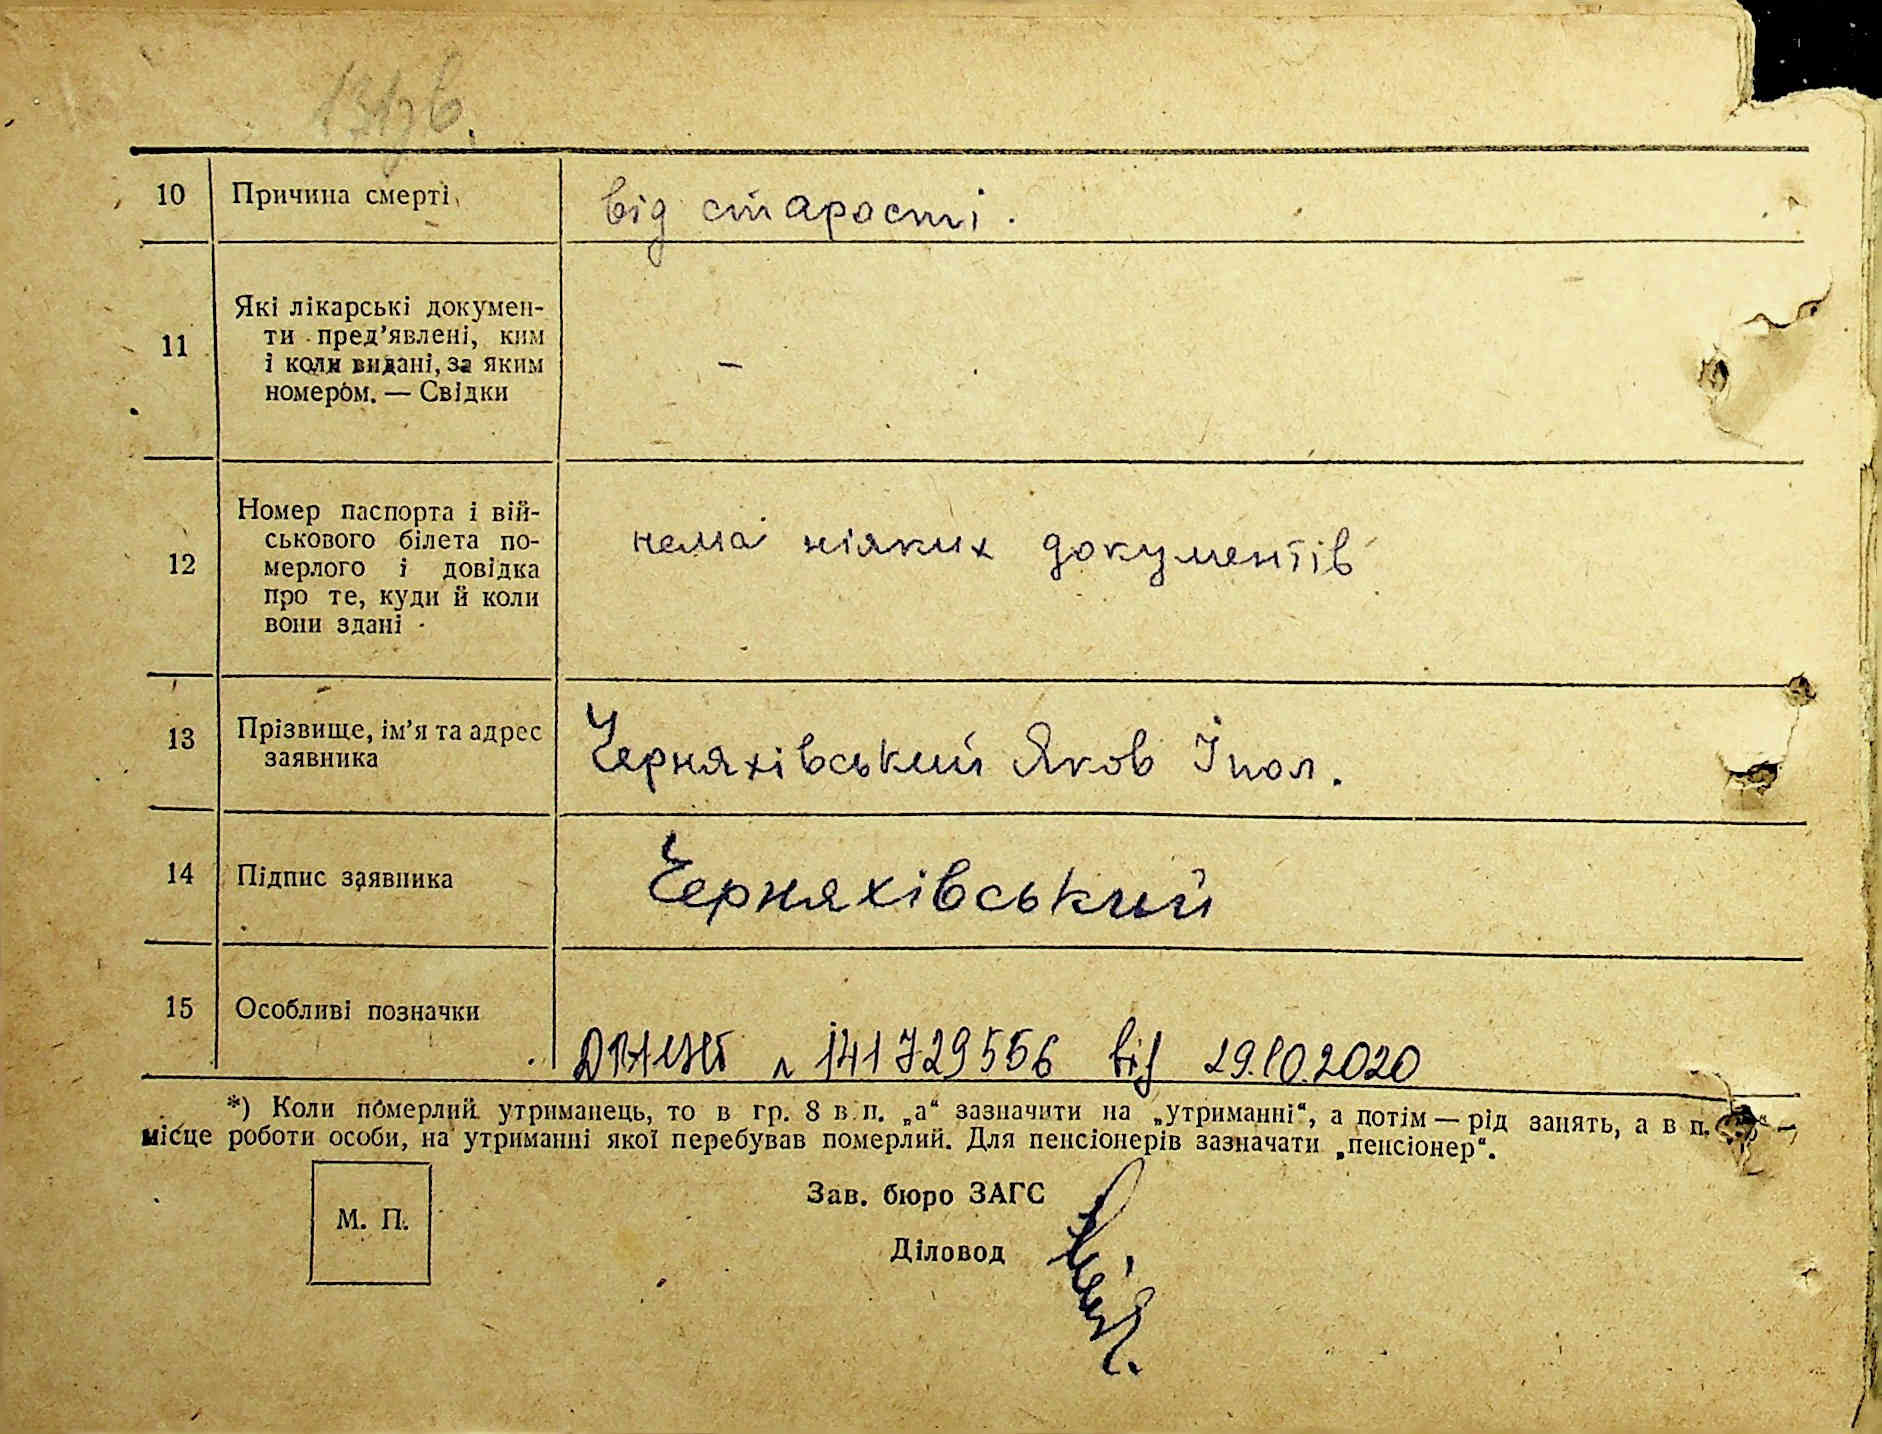 131зв.
10 Причина смерті від старості.
11 Які лікарські докумен-
ти пред’явлені, ким
і коли видані, за яким
номером. — Свідки –
12 Номер паспорта і вій-
ськового білета по-
мерлого і довідка
про те, куди й коли
вони здані нема ніяких документів
13 Прізвище, ім’я та адрес
заявника Черняхівський Яков Іпол.
14 Підпис заявника Черняхівський
15 Особливі позначки
141729556 від 29.10.2020
*) Коли померлий утриманець, то в гр. 8 в п. „а“ зазначити на „утриманні“, а потім — рід занять, а в п. —
місце роботи особи, на утриманні якої перебував померлий. Для пенсіонерів зазначати „пенсіонер“.
М. П.
Зав. бюро ЗАГС
Діловод